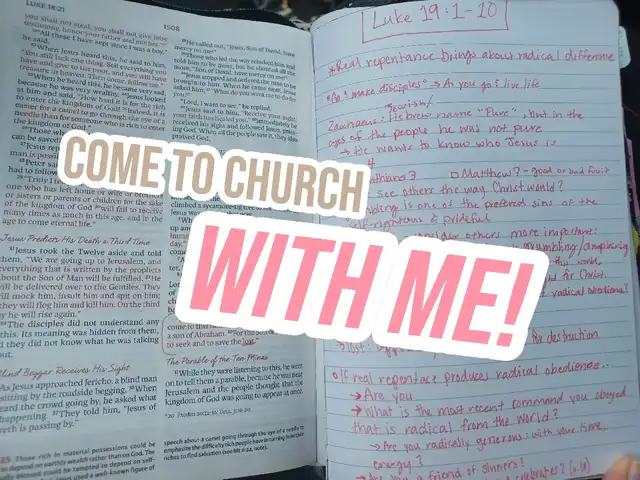 LUKE 18:21
1508
you shall not steal, you shall not give false
testimony, honor your father and mother.'"
"All these I have kept since I was a boy,"
he said.
When Jesus heard this, he said to him,
"You still lack one thing. Sell everything you
have and give to the poor, and you will have
treasure in heaven. Then come, follow me."
When he heard this, he became very sad,
because he was very wealthy. Jesus looked
at him and said, "How hard it is for the rich
to enter the kingdom of God! Indeed, it is
easier for a camel to go through the eye of a
needle than for someone who is rich to enter
the kingdom of God."
Those who
can be saved
Jesus
man is possi
Peter sai
had to follow
"Truly I
one who has left home or wife or brothers
or sisters or parents or children for the sake
of the kingdom of God will fail to receive
many times as much in this age, and in the
age to come eternal life."
Jesus Predicts His Death a Third Time
Jesus took the Twelve aside and told
them, "We are going up to Jerusalem, and
everything that is written by the prophets
about the Son of Man will be fulfilled. He
will be delivered over to the Gentiles. They
will mock him, insult him and spit on him;
they will flog him and kill him. On the third
day he will rise again."
The disciples did not understand any
of this. Its meaning was hidden from them,
and they did not know what he was talking
about.
Blind Beggar Receives His Sight
As Jesus approached Jericho, a blind man
sitting by the roadside begging. When
heard the crowd going by, he asked what
happening. They told him, "Jesus of
reth is passing by."
He called out, "Jesus, Son of David, have
mercy on me!"
Those who led the way rebuked him and
told him to be quiet, but he shouted all the
more, "Son of David, have mercy on me!"
Jesus stopped and ordered the man to be
brought to him. When he came near, Jesus
asked him, "What do you want me to do for
you?"
"Lord, I want to see," he replied.
Jesus said to him, "Receive your sight;
your faith has healed you." Immediately he
received his sight and followed Jesus, praising
God. When all the people saw it, they also
praised God.
climbed a sycamore-fig tree
come to this
a son of Abraham. For the Son of
to seek and to save the lost."
The Parable of the Ten Minas
While they were listening to this, he went
on to tell them a parable, because he was near
Jerusalem and the people thought that the
kingdom of God was going to appear at once.
20 Exodus 20:12-16; Deut. 5:16-20
25 Those rich in material possessions could be
to depend on earthly wealth rather than on God. The
speech about a camel going through the eye of a needle to
emphasize the difficulty rich people have in turning from their
riches to find salvation (see Mt 8:24, note).
COME TO CHURCH
WITH ME!
Luke 19:1-10
*Real repentance brings about radical difference
"Go & make disciples" → As you go & live life
Jewish/
Zacchaeus: Hebrew name "Pure", but in the
eyes of the people he was not pure
→ He wants to know who Jesus is
Matthew 7 - good or bad fruit
see others the way Christ would?
is one of the preferred sins of the
self-righteous & prideful
consider others more important?
grumbling/complaining
this world,
for Christ.
radical obedience?
→ lost:
destruction
If real repentace produces radical obedience...
→ Are you
→ What is the most recent command you obeyed
that is radical from the world?
→ Are you radically generous: with your time,
energy?
Are you a friend of sinners?
celebrates?